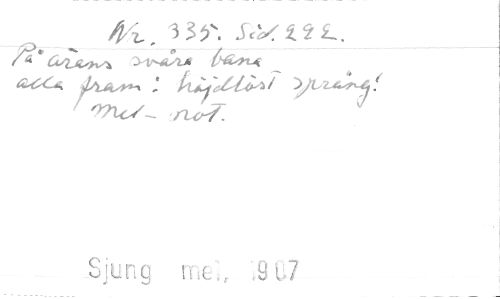 Nr. 335. Sid. 222.
På ärans svåra bana
alla fram: höjdlöst språng!
Mel-not.
Sjung mel, 1907